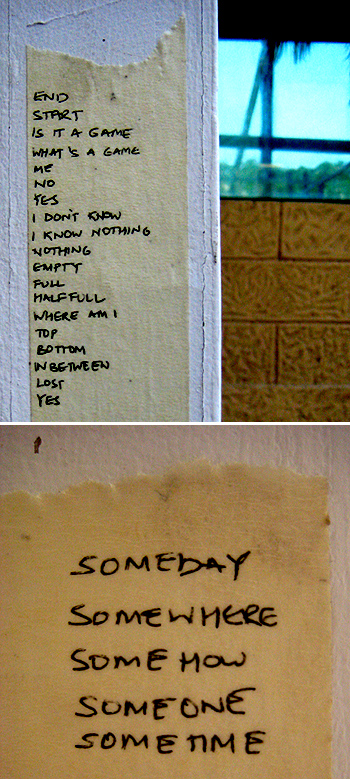 END
START
IS IT A GAME
WHAT'S A GAME
ME
NO
YES
I DON'T KNOW
I KNOW NOTHING
NOTHING
EMPTY
FULL
HALF FULL
WHERE AM I
TOP
BOTTOM
INBETWEEN
LOST
YES
SOMEDAY
SOMEWHERE
SOMEHOW
SOMEONE
SOMETIME